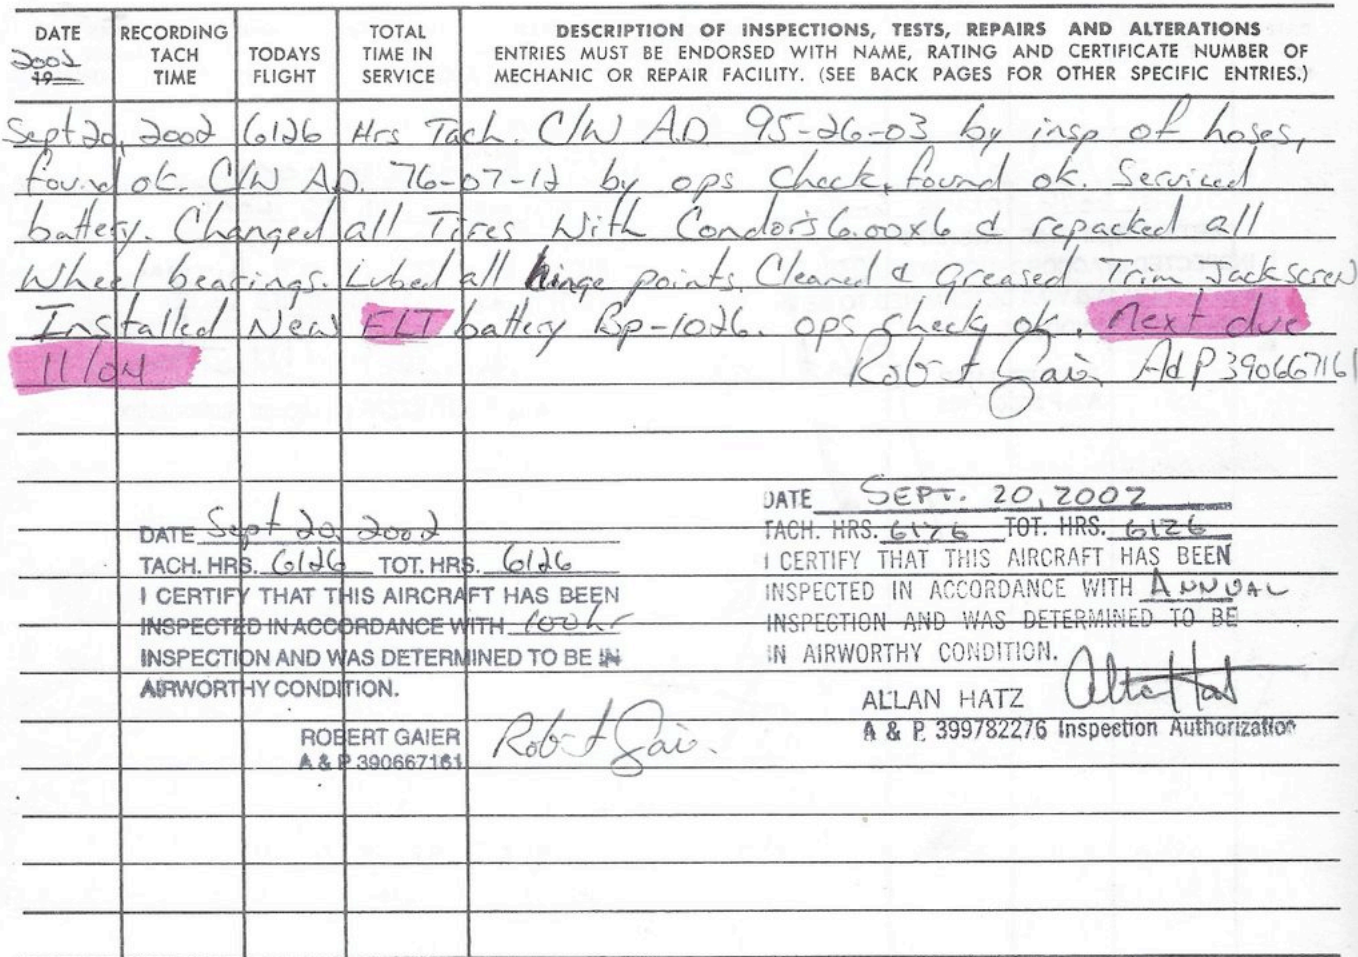 DATE
2002
19
RECORDING
TACH
TIME
TODAYS
FLIGHT
TOTAL
TIME IN
SERVICE
DESCRIPTION OF INSPECTIONS, TESTS, REPAIRS AND ALTERATIONS
ENTRIES MUST BE ENDORSED WITH NAME, RATING AND CERTIFICATE NUMBER OF
MECHANIC OR REPAIR FACILITY. (SEE BACK PAGES FOR OTHER SPECIFIC ENTRIES.)
Sept 20, 2002 6126 Hrs Tach. C/W A.D. 95-26-03 by insp of hoses,
found ok. C/W AD. 76-07-12 by ops check, found ok. Serviced
battery. Changed all Tires With Condor's 6.00x6 & repacked all
Wheel bearings. Lubed all hinge points. Cleaned & Greased Trim Jackscrew
Installed New ELT battery Bp-1026. ops check ok. Next due
11/04
Robert Gaier A&P 390667161
DATE Sept 20, 2002
TACH. HRS. 6126 TOT. HRS. 6126
I CERTIFY THAT THIS AIRCRAFT HAS BEEN
INSPECTED IN ACCORDANCE WITH 100hr
INSPECTION AND WAS DETERMINED TO BE IN
AIRWORTHY CONDITION.
ROBERT GAIER Robert Gaier
A & P 390667161
DATE SEPT. 20, 2002
TACH. HRS. 6126 TOT. HRS. 6126
I CERTIFY THAT THIS AIRCRAFT HAS BEEN
INSPECTED IN ACCORDANCE WITH ANNUAL
INSPECTION AND WAS DETERMINED TO BE
IN AIRWORTHY CONDITION.
ALLAN HATZ Allan Hatz
A & P. 399782276 Inspection Authorization